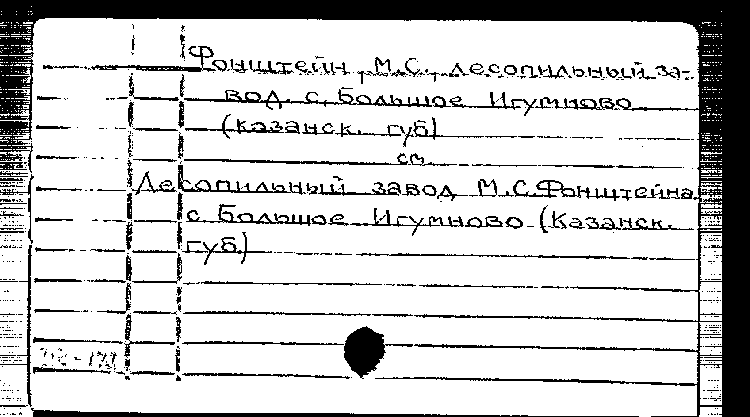 Фонштейн, М.С., лесопильный за-
вод. с. Большое Игумново
(Казанск. губ)
см.
Лесопильный завод М.С.Фонштейна.
с. Большое Игумново (Казанск.
губ.)